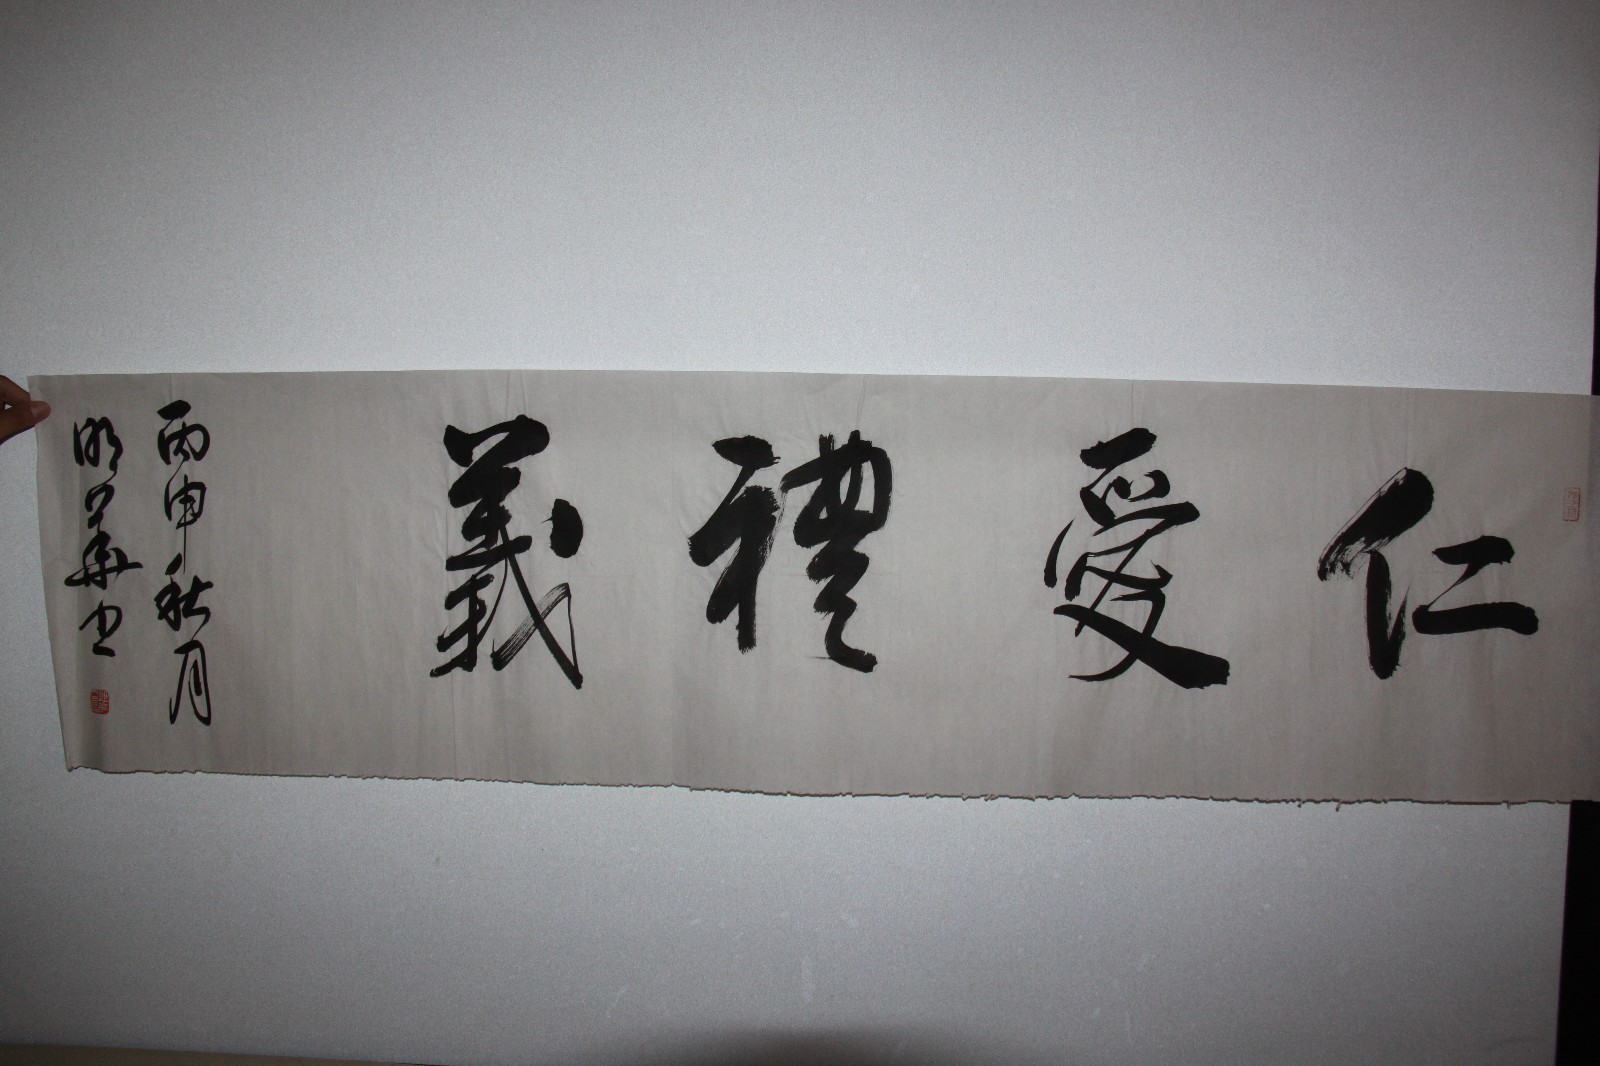 仁愛禮義
丙申秋月
明華書